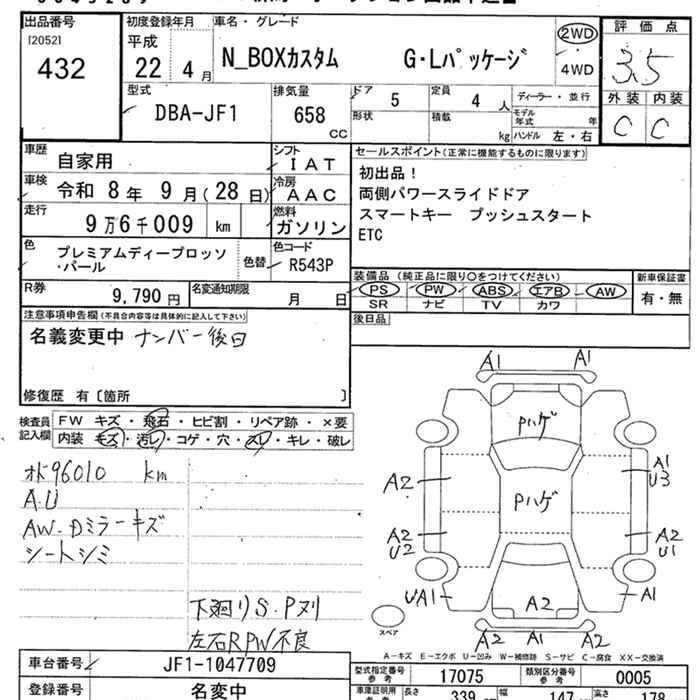 出品番号
[2052]
432
初度登録年月
平成
22 4月
車名・グレード
N_BOXカスタム G・Lパッケージ
2WD
4WD
評価点
3.5
外装 内装
C C
型式
DBA-JF1
排気量
658
CC
ドア
5
定員
4人
ディーラー・並行
形状
積載
kg
モデル年式 年
ハンドル 左・右
車歴
自家用
シフト
IAT
車検
令和 8年 9月(28日)
冷房
AAC
走行
9万6千009 km
燃料
ガソリン
色
プレミアムディープロッソ
・パール
色替
色コード
R543P
R券
9,790円
名変通知期限
月 日
セールスポイント(正常に機能するものに限ります)
初出品!
両側パワースライドドア
スマートキー プッシュスタート
ETC
装備品(純正品に限り○をつけてください)
PS PW ABS エアB AW
SR ナビ TV カワ
新車保証書
有・無
後日品
注意事項申告欄(不具合内容等は具体的に記入して下さい)
名義変更中 ナンバー後日
修復歴 有 [箇所 ]
検査員
記入欄
FW キズ・飛石・ヒビ割・リペア跡・×要
内装 キズ・汚レ・コゲ・穴・スレ・キレ・破レ
96010 km
A.U
AW.Dミラーキズ
シートシミ
下廻りS.P刈
左右RPW不良
A1 A1
Pハゲ
Pハゲ
A2
A2
U2
A1
U3
A2
U1
UA1
A1
A2
A2 A1 A2
スペア
A-キズ E-エクボ U-凹み W-補修跡 S-サビ C-腐食 XX-交換済
車台番号
JF1-1047709
型式指定番号
参考
17075
類別区分番号
参考
0005
登録番号
名変中
車庫証明用
長さ 339 幅 147 高さ 178